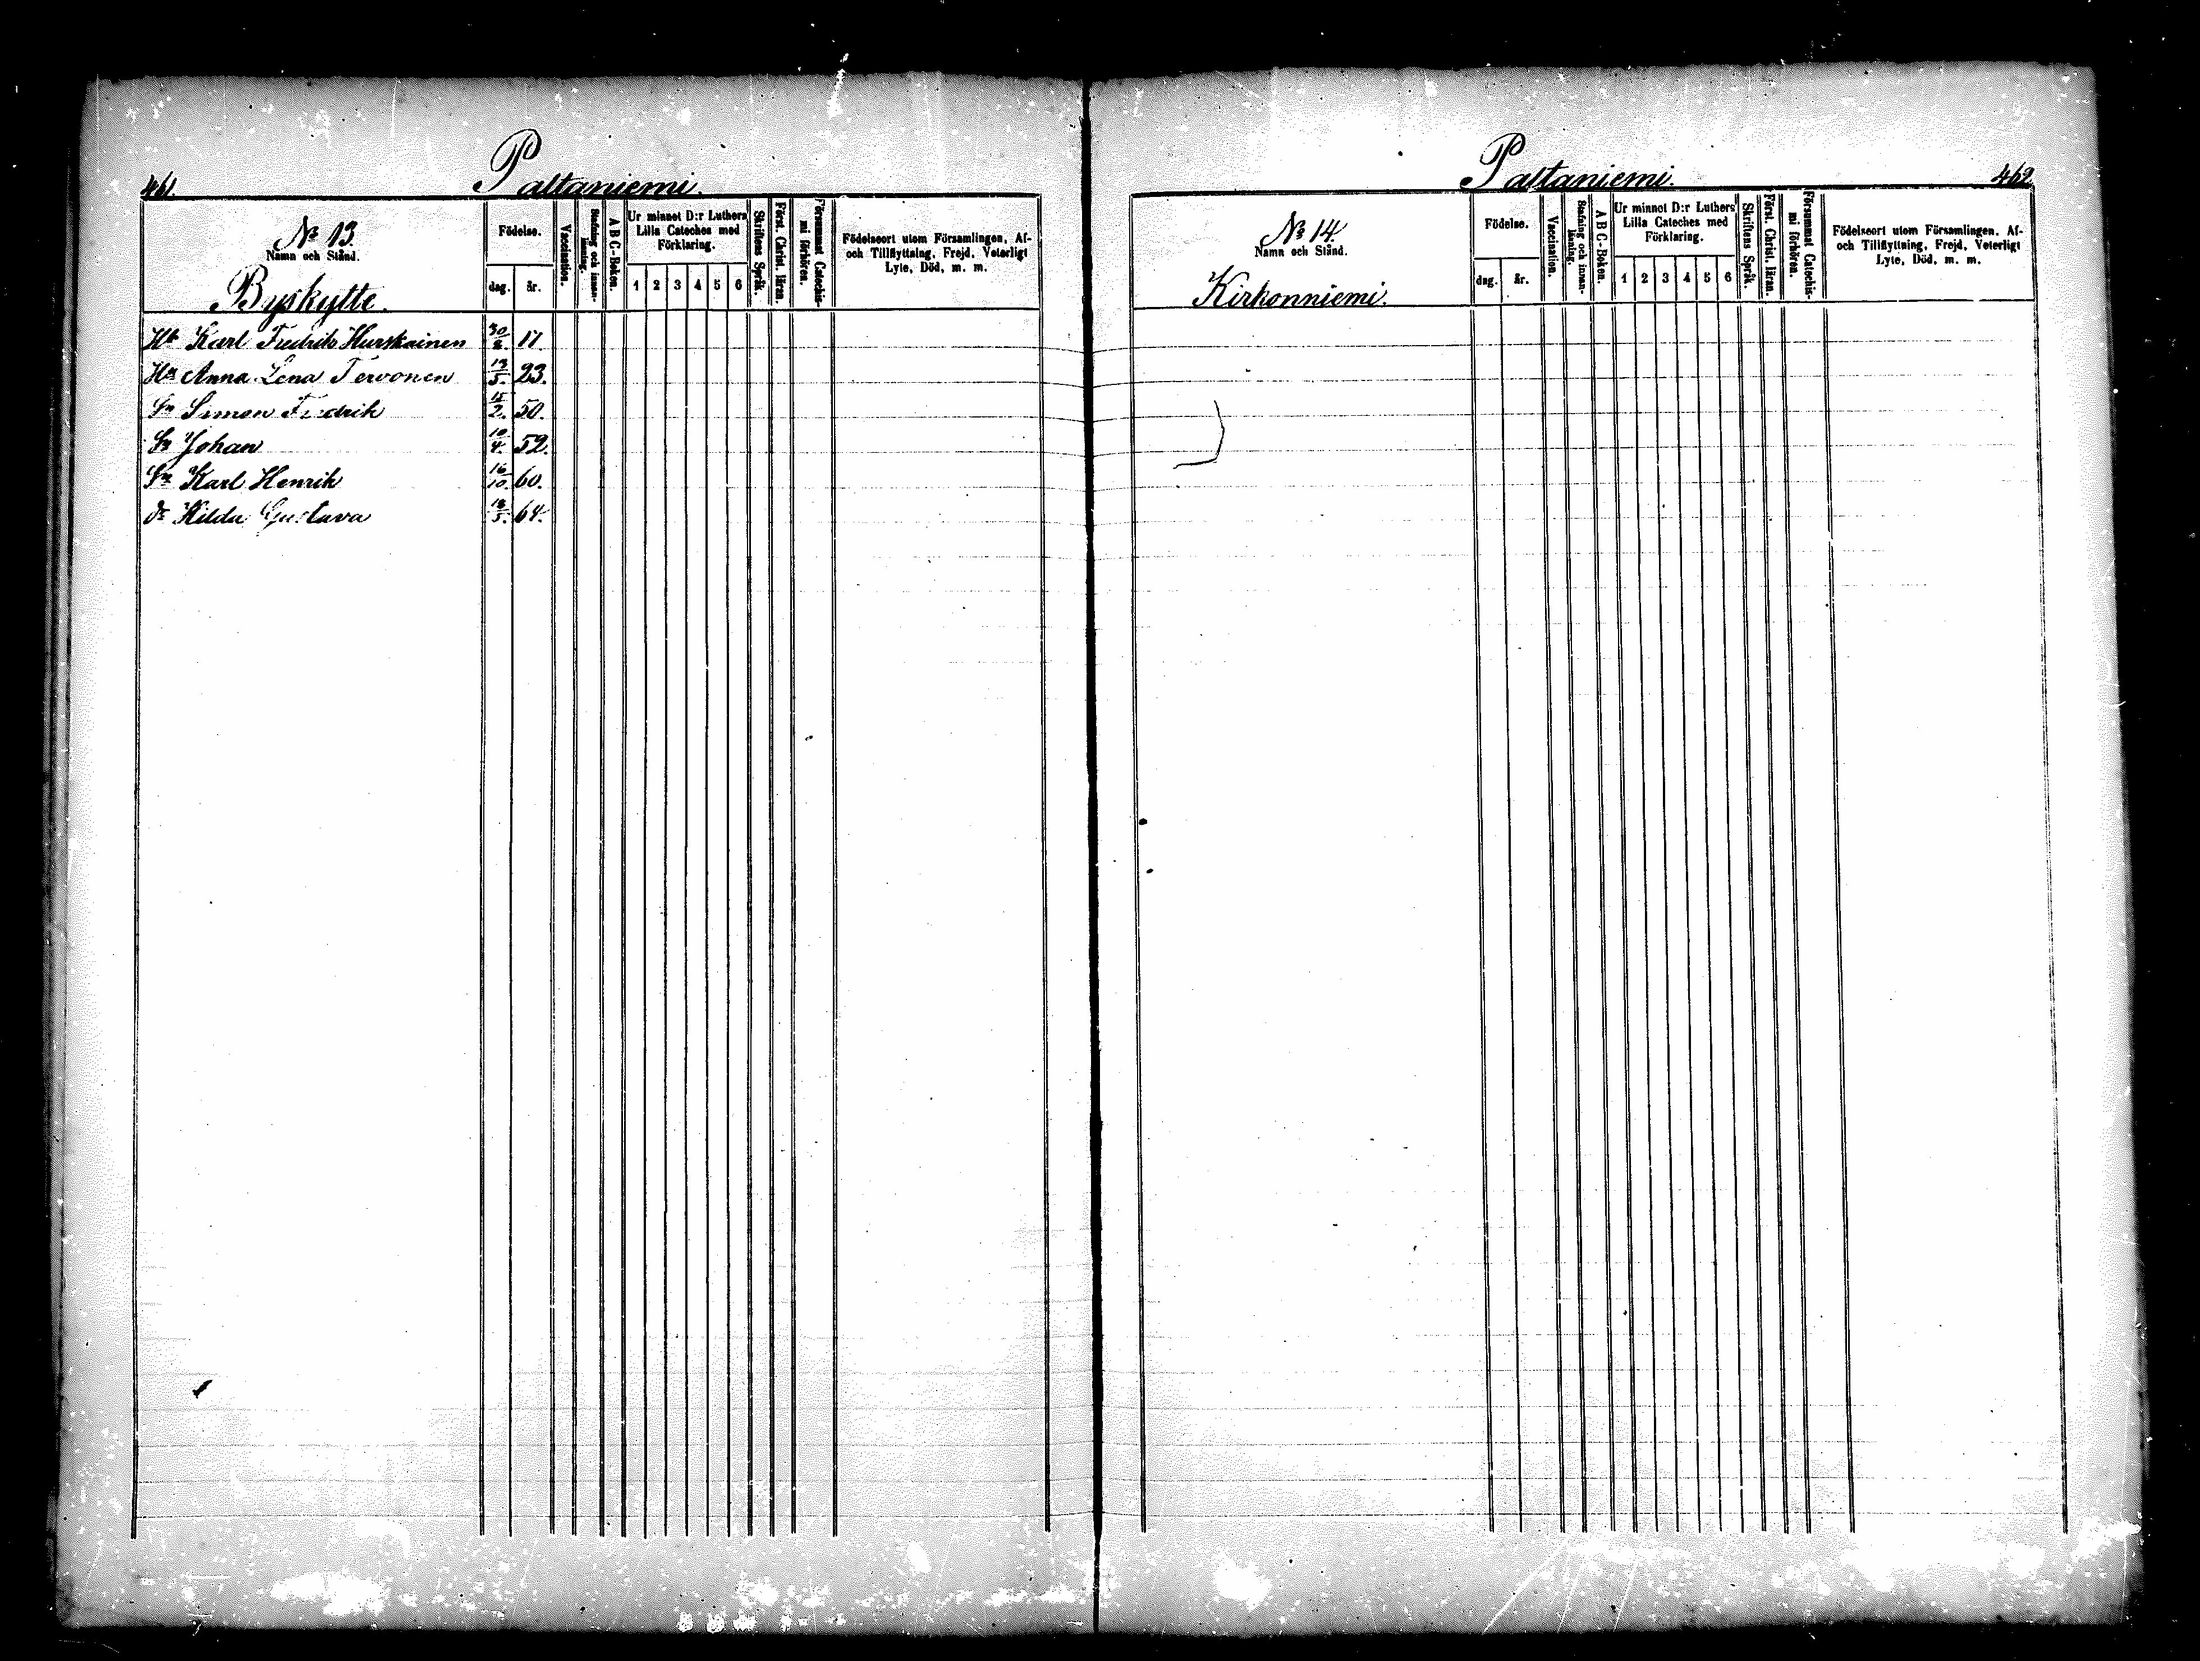 461.
Paltaniemi.
No 13.
Namn och Stånd.
Byskytte.
Födelse.
dag. år.
Vaccination.
Stafning och innanläsning.
A B C-Boken.
Ur minnet D:r Luthers
Lilla Cateches med
Förklaring.
1 2 3 4 5 6
Skriftens Språk.
Först. Christ. läran.
Försummat Catechismi förhören.
Födelseort utom Församlingen, Af-
och Tillflyttning, Frejd, Veterligt
Lyte, Död, m. m.
Karl Fredrik Hurskainen 30 17.
Anna Lena Tervonen 5. 23.
Sn Simon Fredrik 15/2. 50.
Sn Johan 10/4. 52.
Sn Karl Henrik 16/10. 60.
dr Hilda Gustava 5. 64.
Paltaniemi.
462.
No 14.
Namn och Stånd.
Kirkonniemi.
Födelse.
dag. år.
Vaccination.
Stafning och innanläsning.
A B C-Boken.
Ur minnet D:r Luthers
Lilla Cateches med
Förklaring.
1 2 3 4 5 6
Skriftens Språk.
Först. Christ. läran.
Försummat Catechismi förhören.
Födelseort utom Församlingen, Af-
och Tillflyttning, Frejd, Veterligt
Lyte, Död, m. m.